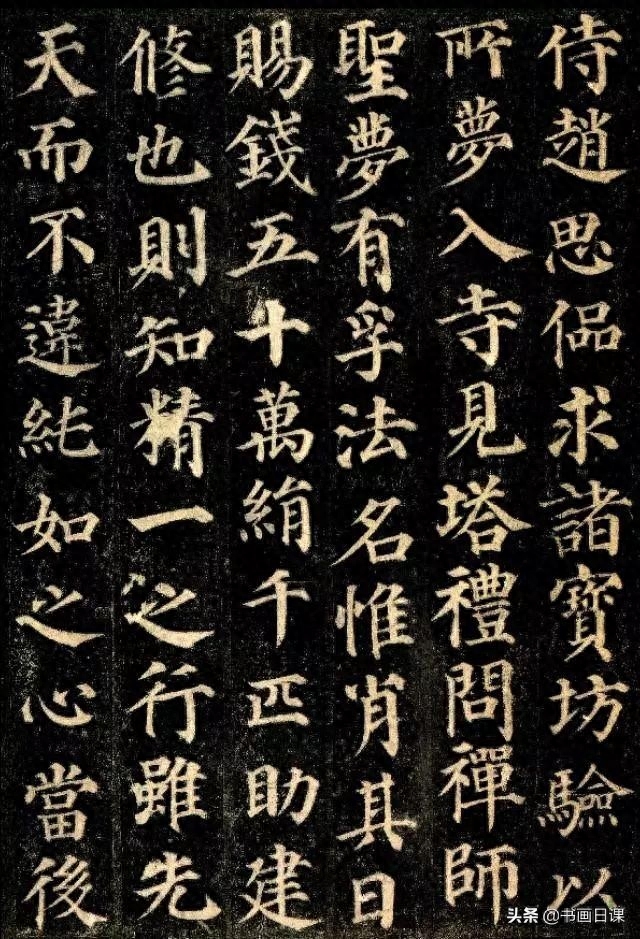 侍趙思侃求諸寶坊驗以
所夢入寺見塔禮問禪師
聖夢有孚法名惟肖其日
賜錢五十萬絹千匹助建
修也則知精一之行雖先
天而不違純如之心當後
头条 @书画日课